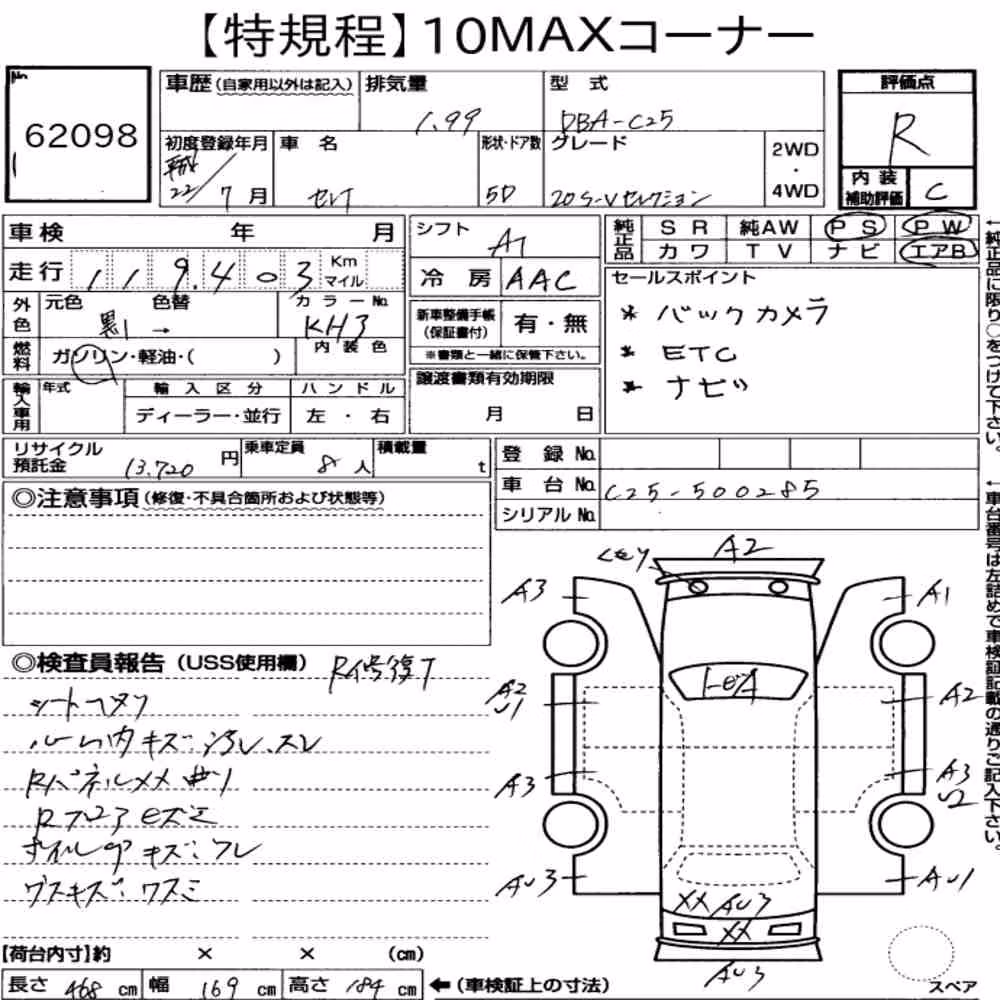 【特規程】10MAXコーナー
No. 62098
車歴(自家用以外は記入) 排気量 1.99 型式 DBA-C25
評価点 R
初度登録年月 平成22/7月 車名 セレナ 形状・ドア数 5D グレード 20S-Vセレクション 2WD・4WD
内装補助評価 C
車検 年 月
走行 119,403 Km マイル
シフト AT
冷房 AAC
純正品 SR 純AW PS PW
カワ TV ナビ エアB
セールスポイント
* バックカメラ
* ETC
* ナビ
外色 元色 黒 → 色替 カラーNo. KH3
新車整備手帳(保証書付) 有・無
※書類と一緒に保管下さい。
燃料 ガソリン・軽油・( ) 内装色
輸入車用 年式 輸入区分 ハンドル
ディーラー・並行 左・右
譲渡書類有効期限
月 日
リサイクル預託金 13,720円 乗車定員 8人 積載量 t
登録No.
車台No. C25-500285
シリアルNo.
◎注意事項(修復・不具合箇所および状態等)
◎検査員報告(USS使用欄) R修復有
シートコゲ
ルーム内キズ・汚レ、スレ
Rパネルメメ
キズ:
【荷台内寸】約 × × (cm)
長さ 468cm 幅 169cm 高さ 184cm ←(車検証上の寸法)
A2
A3 A1
A2
U1
A2
A3
A3
U2
AU3 AU1
XX AU3
XX
AU3
スペア
←純正品に限り○をつけて下さい。
←車台番号は左詰めで車検証記載の通りご記入下さい。